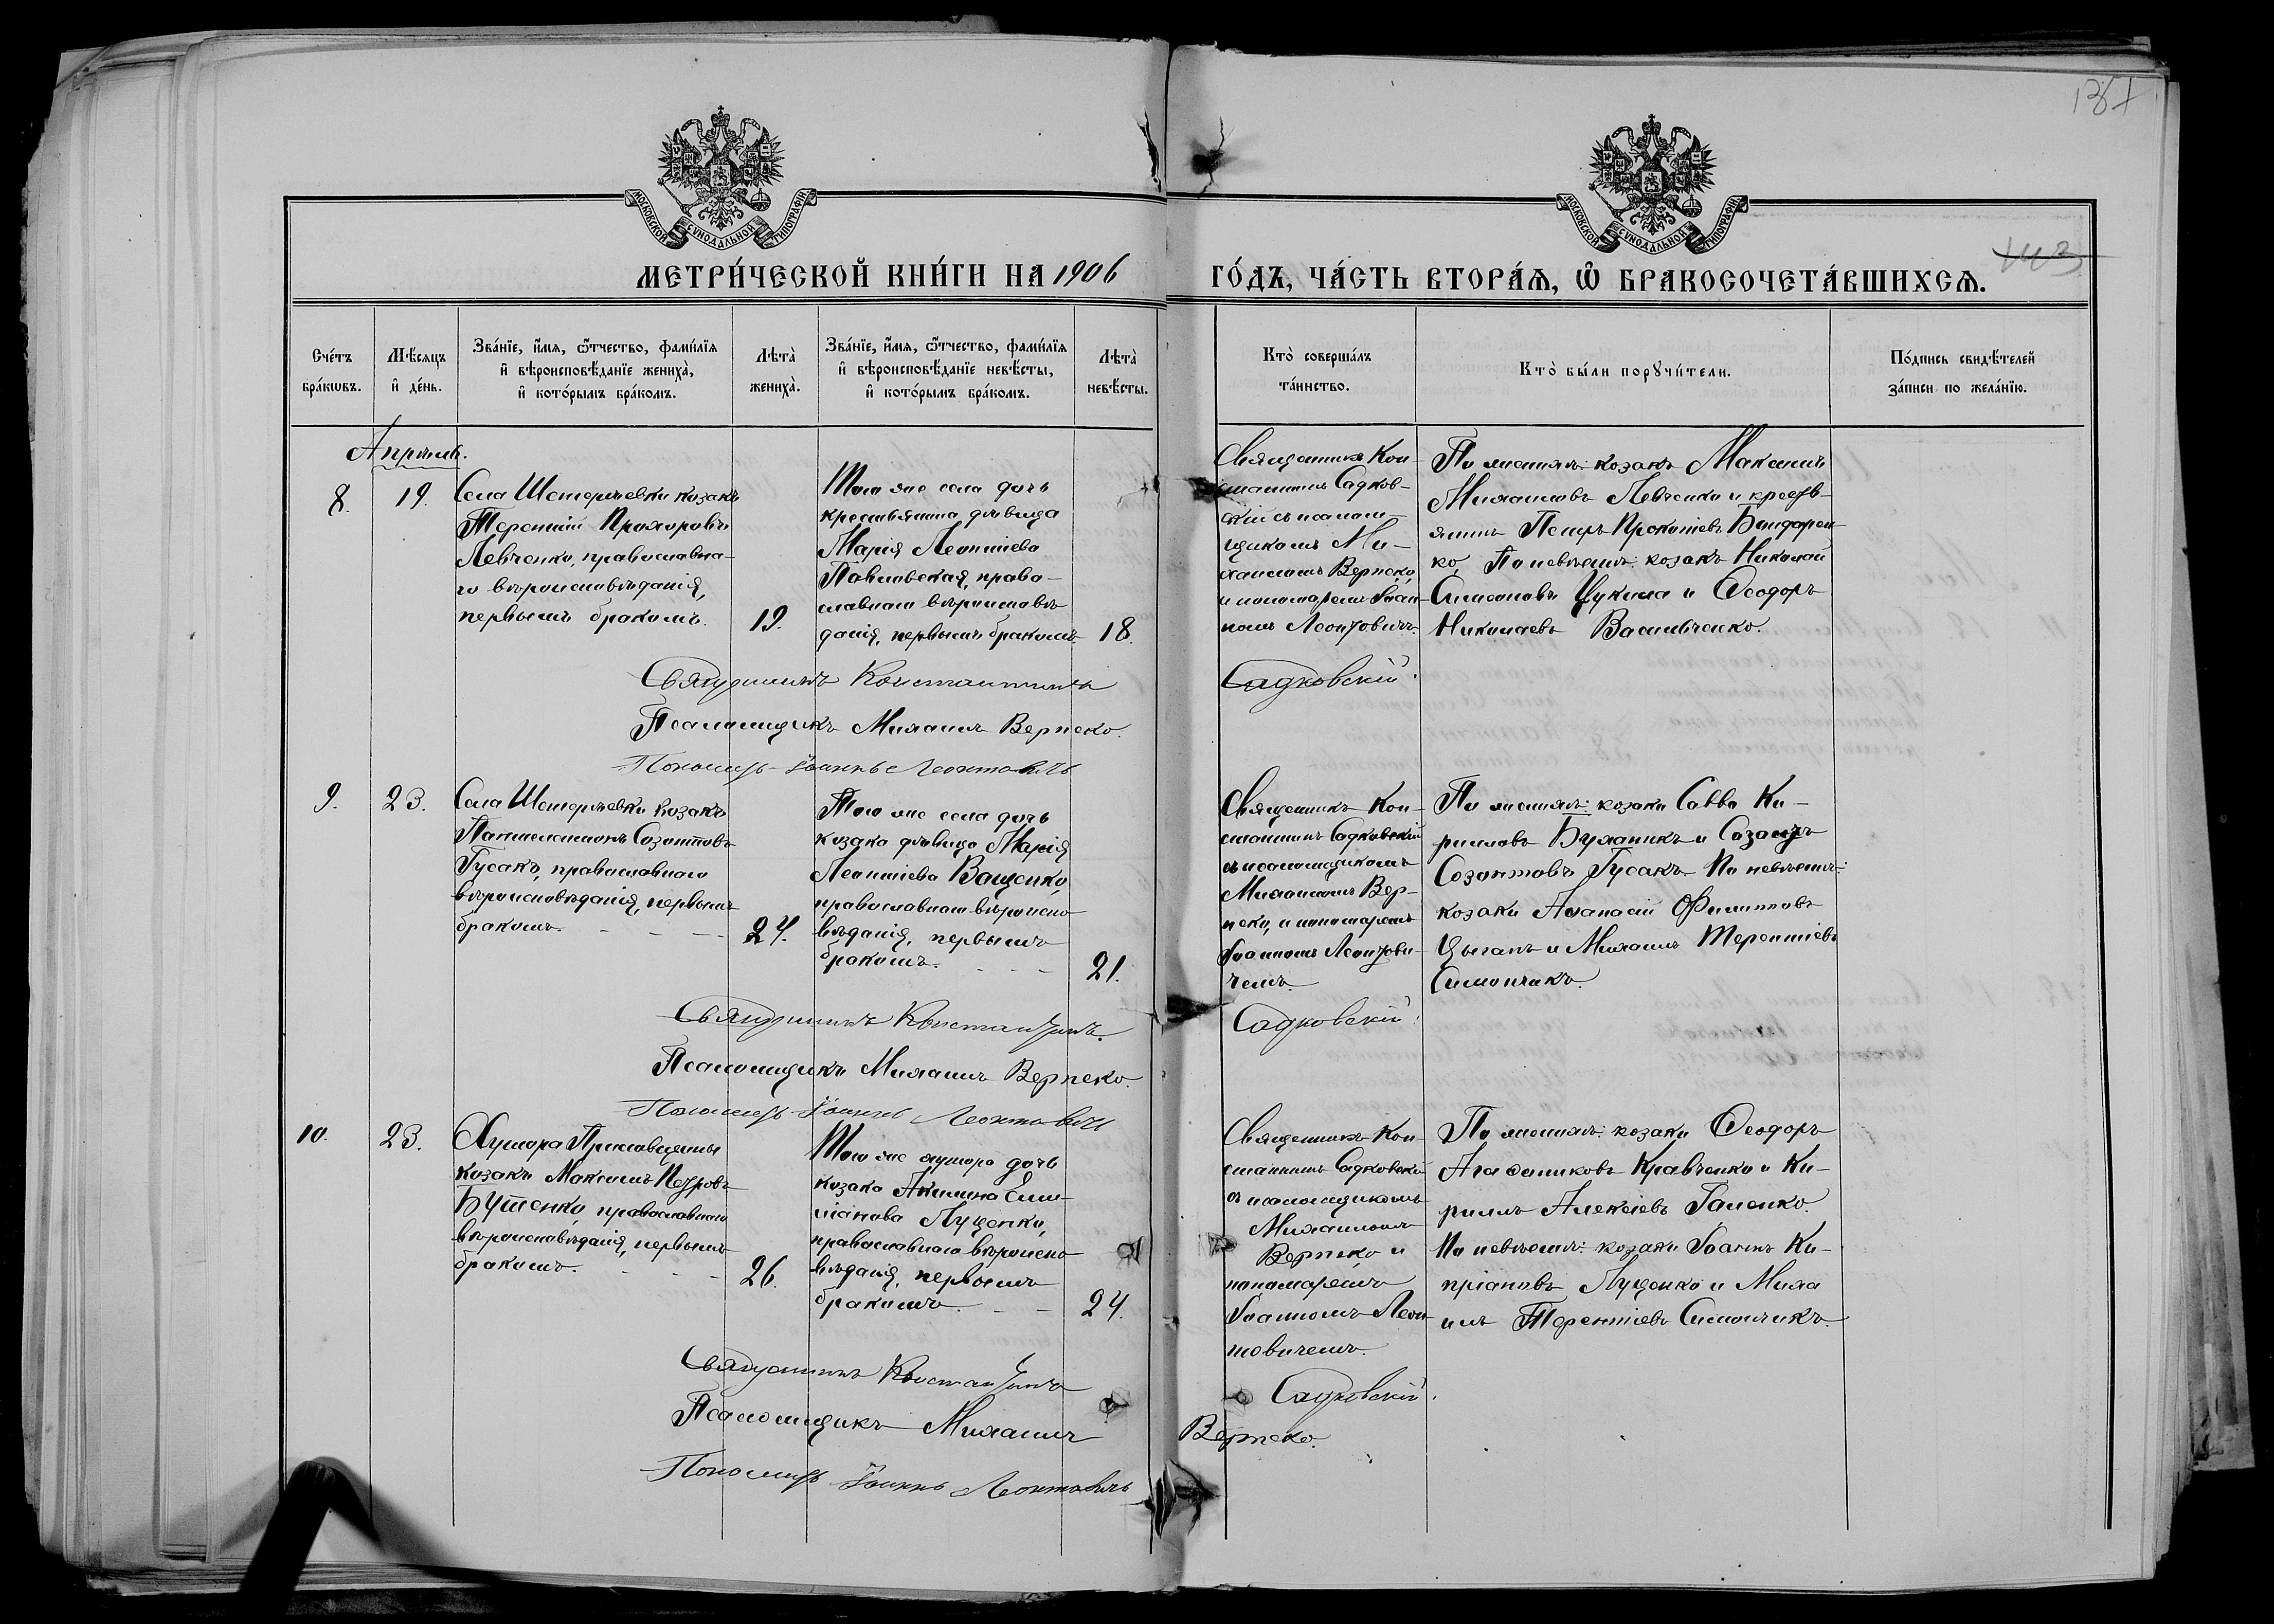 137
МОСКОВСКОЙ СѴНОДАЛЬНОЙ ТИПОГРАФІИ
МОСКОВСКОЙ СѴНОДАЛЬНОЙ ТИПОГРАФІИ
МЕТРИ́ЧЕСКОЙ КНИ́ГИ НА 1906
ГО́ДЪ, ЧА́СТЬ ВТОРА́Я, Ѡ БРАКОСОЧЕТА́ВШИХСЯ.
Сче́тъ
бра́кѡвъ.
Мѣ́сяцъ
и де́нь.
Зва́нїе, и́мя, ѻ́тчество, фами́лїя
и вѣроисповѣ́данїе жениха̀,
и кото́рымъ бра́комъ.
Лѣта̀
жениха̀.
Зва́нїе, и́мя, ѻ́тчество, фами́лїя
и вѣроисповѣ́данїе невѣ́сты,
и кото́рымъ бра́комъ.
Лѣта̀
невѣ́сты.
Кто̀ соверша́лъ
та́инство.
Кто̀ бы́ли порꙋчи́тели.
По́дпись свидѣ́телей
за́писи по жела́нїю.
Апрѣль.
8.
19.
Села козакъ
Терентій Прохоровъ
Левченко, православна-
го вѣроисповѣданія,
первымъ бракомъ.
19.
Того же села дочь
крестьянина дѣвица
Марія Леонтіева
Павловская, право-
славнаго вѣроисповѣ
данія, первымъ бракомъ
18.
Священникъ Кон-
стантинъ Садков-
скій съ псалом-
щикомъ Ми-
хаиломъ Верпеко,
и пономаремъ Іоан-
номъ Леонтовичъ.
По женихѣ: козакъ Максимъ
Михаиловъ Левченко и кресть-
янинъ Петръ Прокопіевъ Бондарен-
ко, По невѣстѣ: козакъ Николай
Симеоновъ Цукила и Ѳеодоръ
Николаевъ Васильченко.
Священникъ Константинъ
Садковскій.
Псаломщикъ Михаилъ Верпеко.
Пономарь Іоаннъ Леонтовичъ
9.
23.
Села козакъ
Пантелеимонъ Созонтовъ
Гусакъ, православнаго
вѣроисповѣданія, первымъ
бракомъ.
24.
Того же села дочь
козака дѣвица Марія
Леонтіева Ващенко,
православнаго вѣроиспо
вѣданія, первымъ
бракомъ.
21.
Священникъ Кон-
стантинъ Садковскій
съ псаломщикомъ
Михаиломъ Вер-
пеко, и пономаремъ
Іоанномъ Леонтови-
чемъ.
По женихѣ: козаки Савва Ки-
рилловъ и Созонтъ
Созонтовъ Гусакъ. По невѣстѣ:
козаки Аѳанасій Филипповъ
Цыганъ и Михаилъ Терентіевъ
Симончикъ.
Священникъ Константинъ
Садковскій.
Псаломщикъ Михаилъ Верпеко.
Пономарь Іоаннъ Леонтовичъ
10.
23.
Хутора
козакъ Максимъ Петровъ
Бутенко, православнаго
вѣроисповѣданія, первымъ
бракомъ.
26.
Того же хутора дочь
козака Акилина Еми-
ліанова Луценко,
православнаго вѣроиспо
вѣданія, первымъ
бракомъ.
24.
Священникъ Кон-
стантинъ Садковскій
съ псаломщикомъ
Михаиломъ
Верпеко и
пономаремъ
Іоанномъ Леон-
товичемъ.
По женихѣ: козаки Ѳеодоръ
Агаѳониковъ Кравченко и Ки-
риллъ Алексіевъ Галенко.
По невѣстѣ: козаки Іоаннъ Ки-
пріановъ Луценко и Миха
илъ Терентіевъ Симончикъ.
Священникъ Константинъ
Садковскій.
Псаломщикъ Михаилъ
Верпеко.
Пономарь Іоаннъ Леонтовичъ